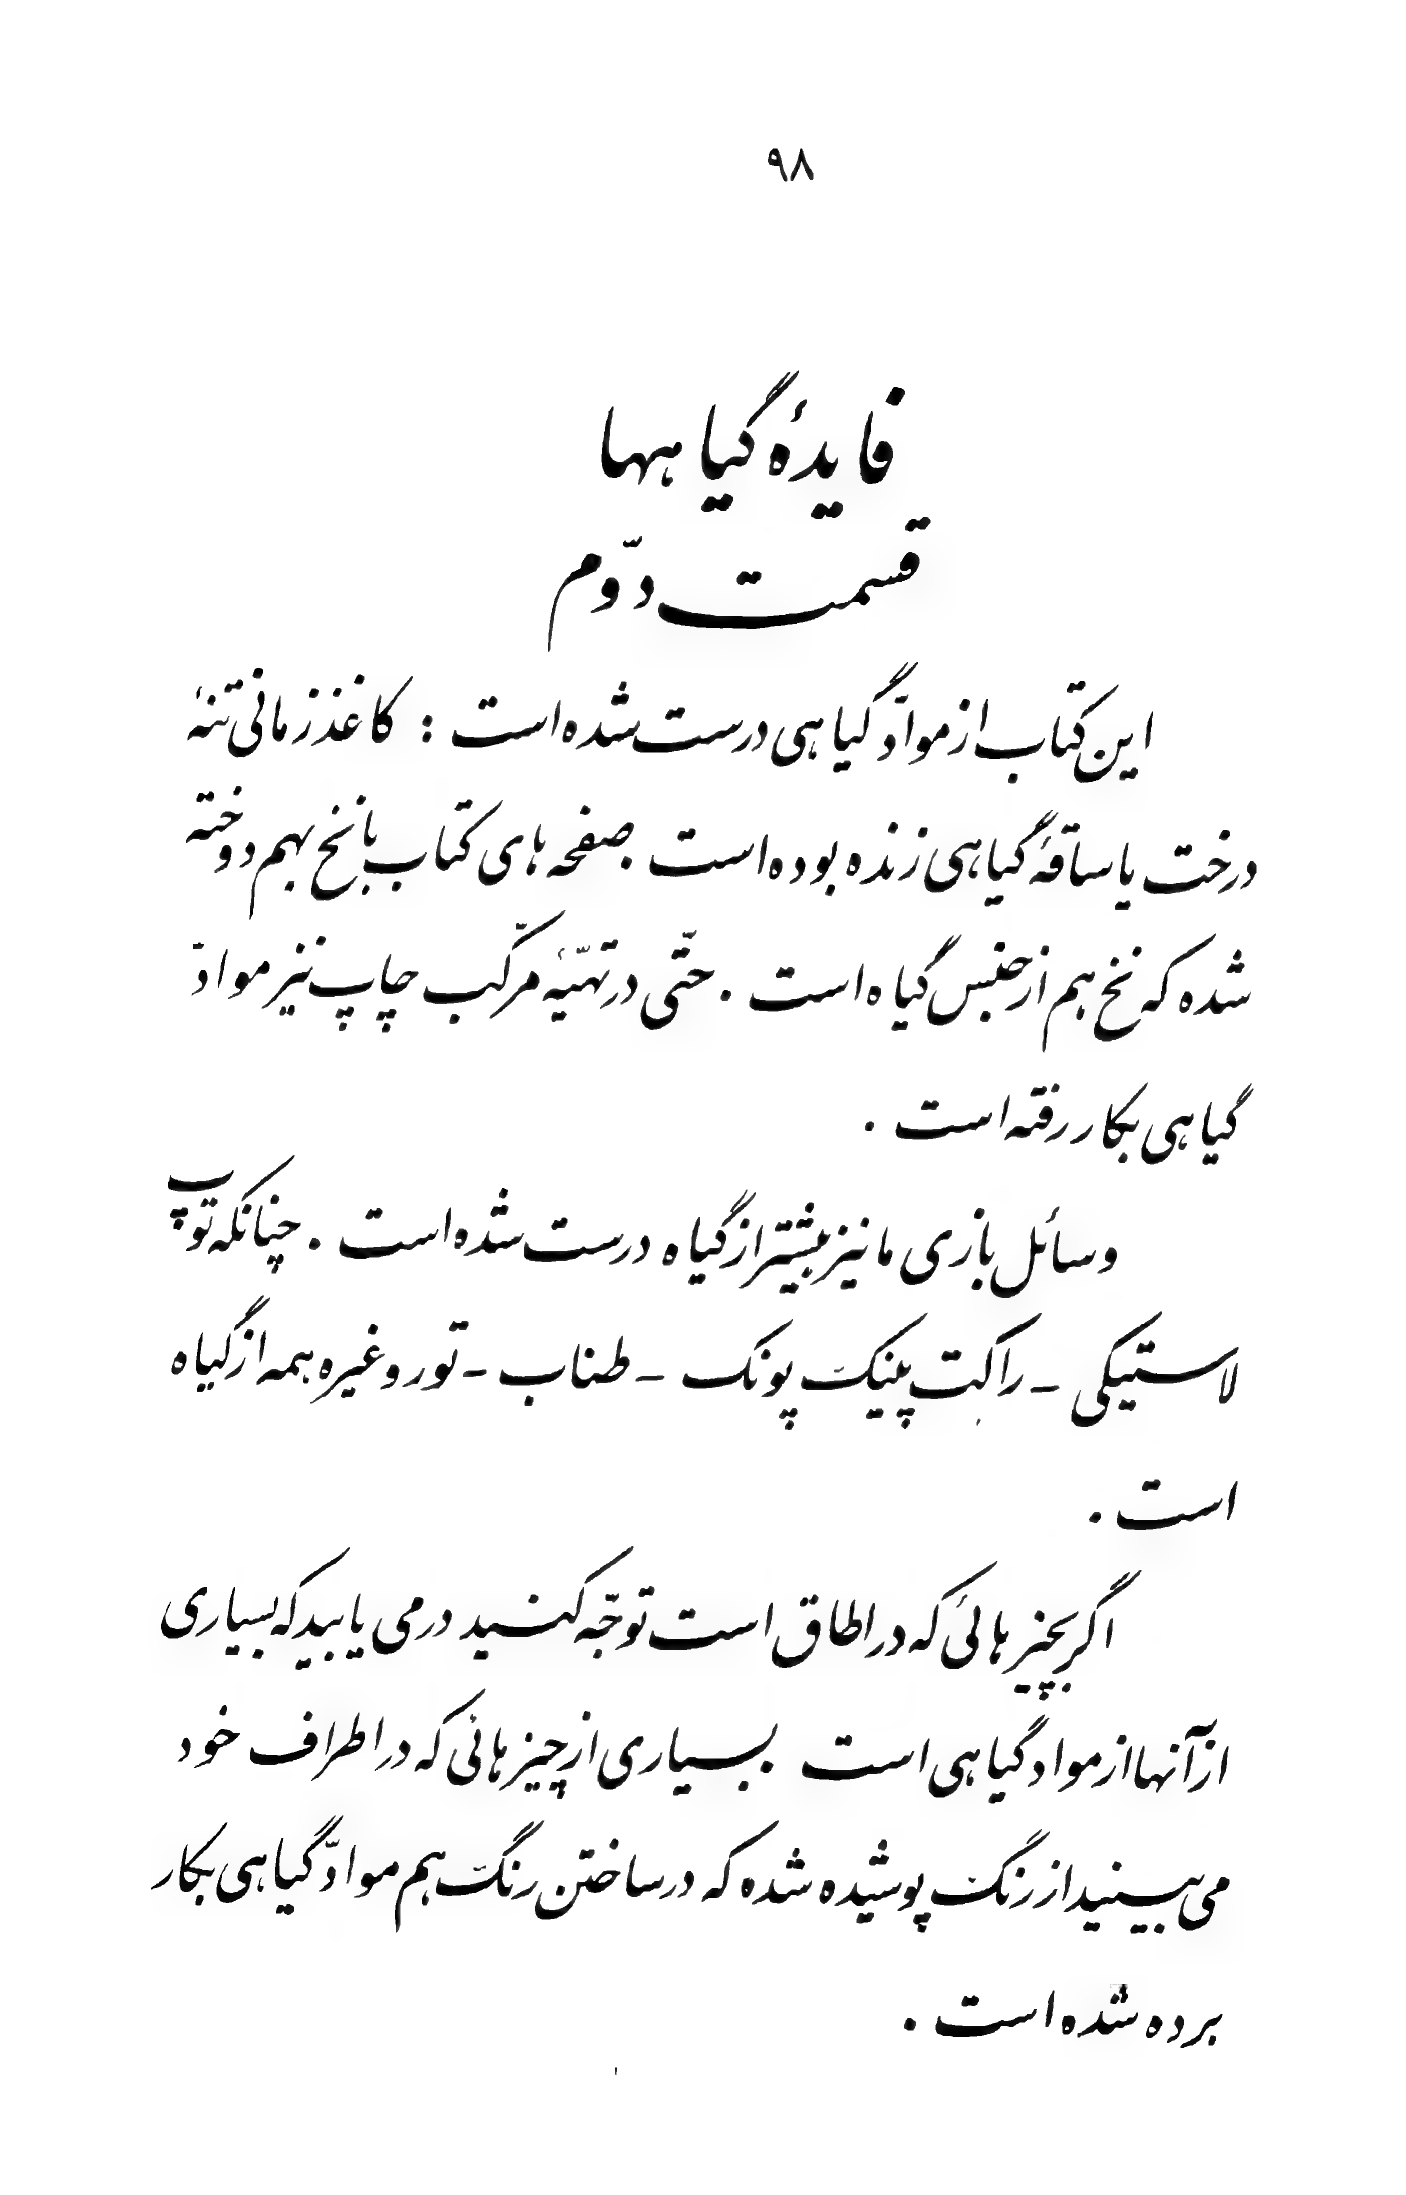 ۹۸
فایدهٔ گیاهها
قسمت دوّم
این کتاب از موادّ گیاهی درست شده است : کاغذ زمانی تنهٔ
درخت یا ساقهٔ گیاهی زنده بوده است . صفحه های کتاب با نخ بهم دوخته
شده که نخ هم از جنس گیاه است . حتّی در تهیّهٔ مرکّب چاپ نیز موادّ
گیاهی بکار رفته است .
وسائل بازی ما نیز بیشتر از گیاه درست شده است . چنانکه توپ
لاستیکی - راکت پینگ پونگ - طناب - تور و غیره همه از گیاه
است .
اگر بچیزهائی که در اطاق است توجّه کنید درمی یابید که بسیاری
از آنها از مواد گیاهی است . بسیاری از چیزهائی که در اطراف خود
می بینید از رنگ پوشیده شده که در ساختن رنگ هم موادّ گیاهی بکار
برده شده است .